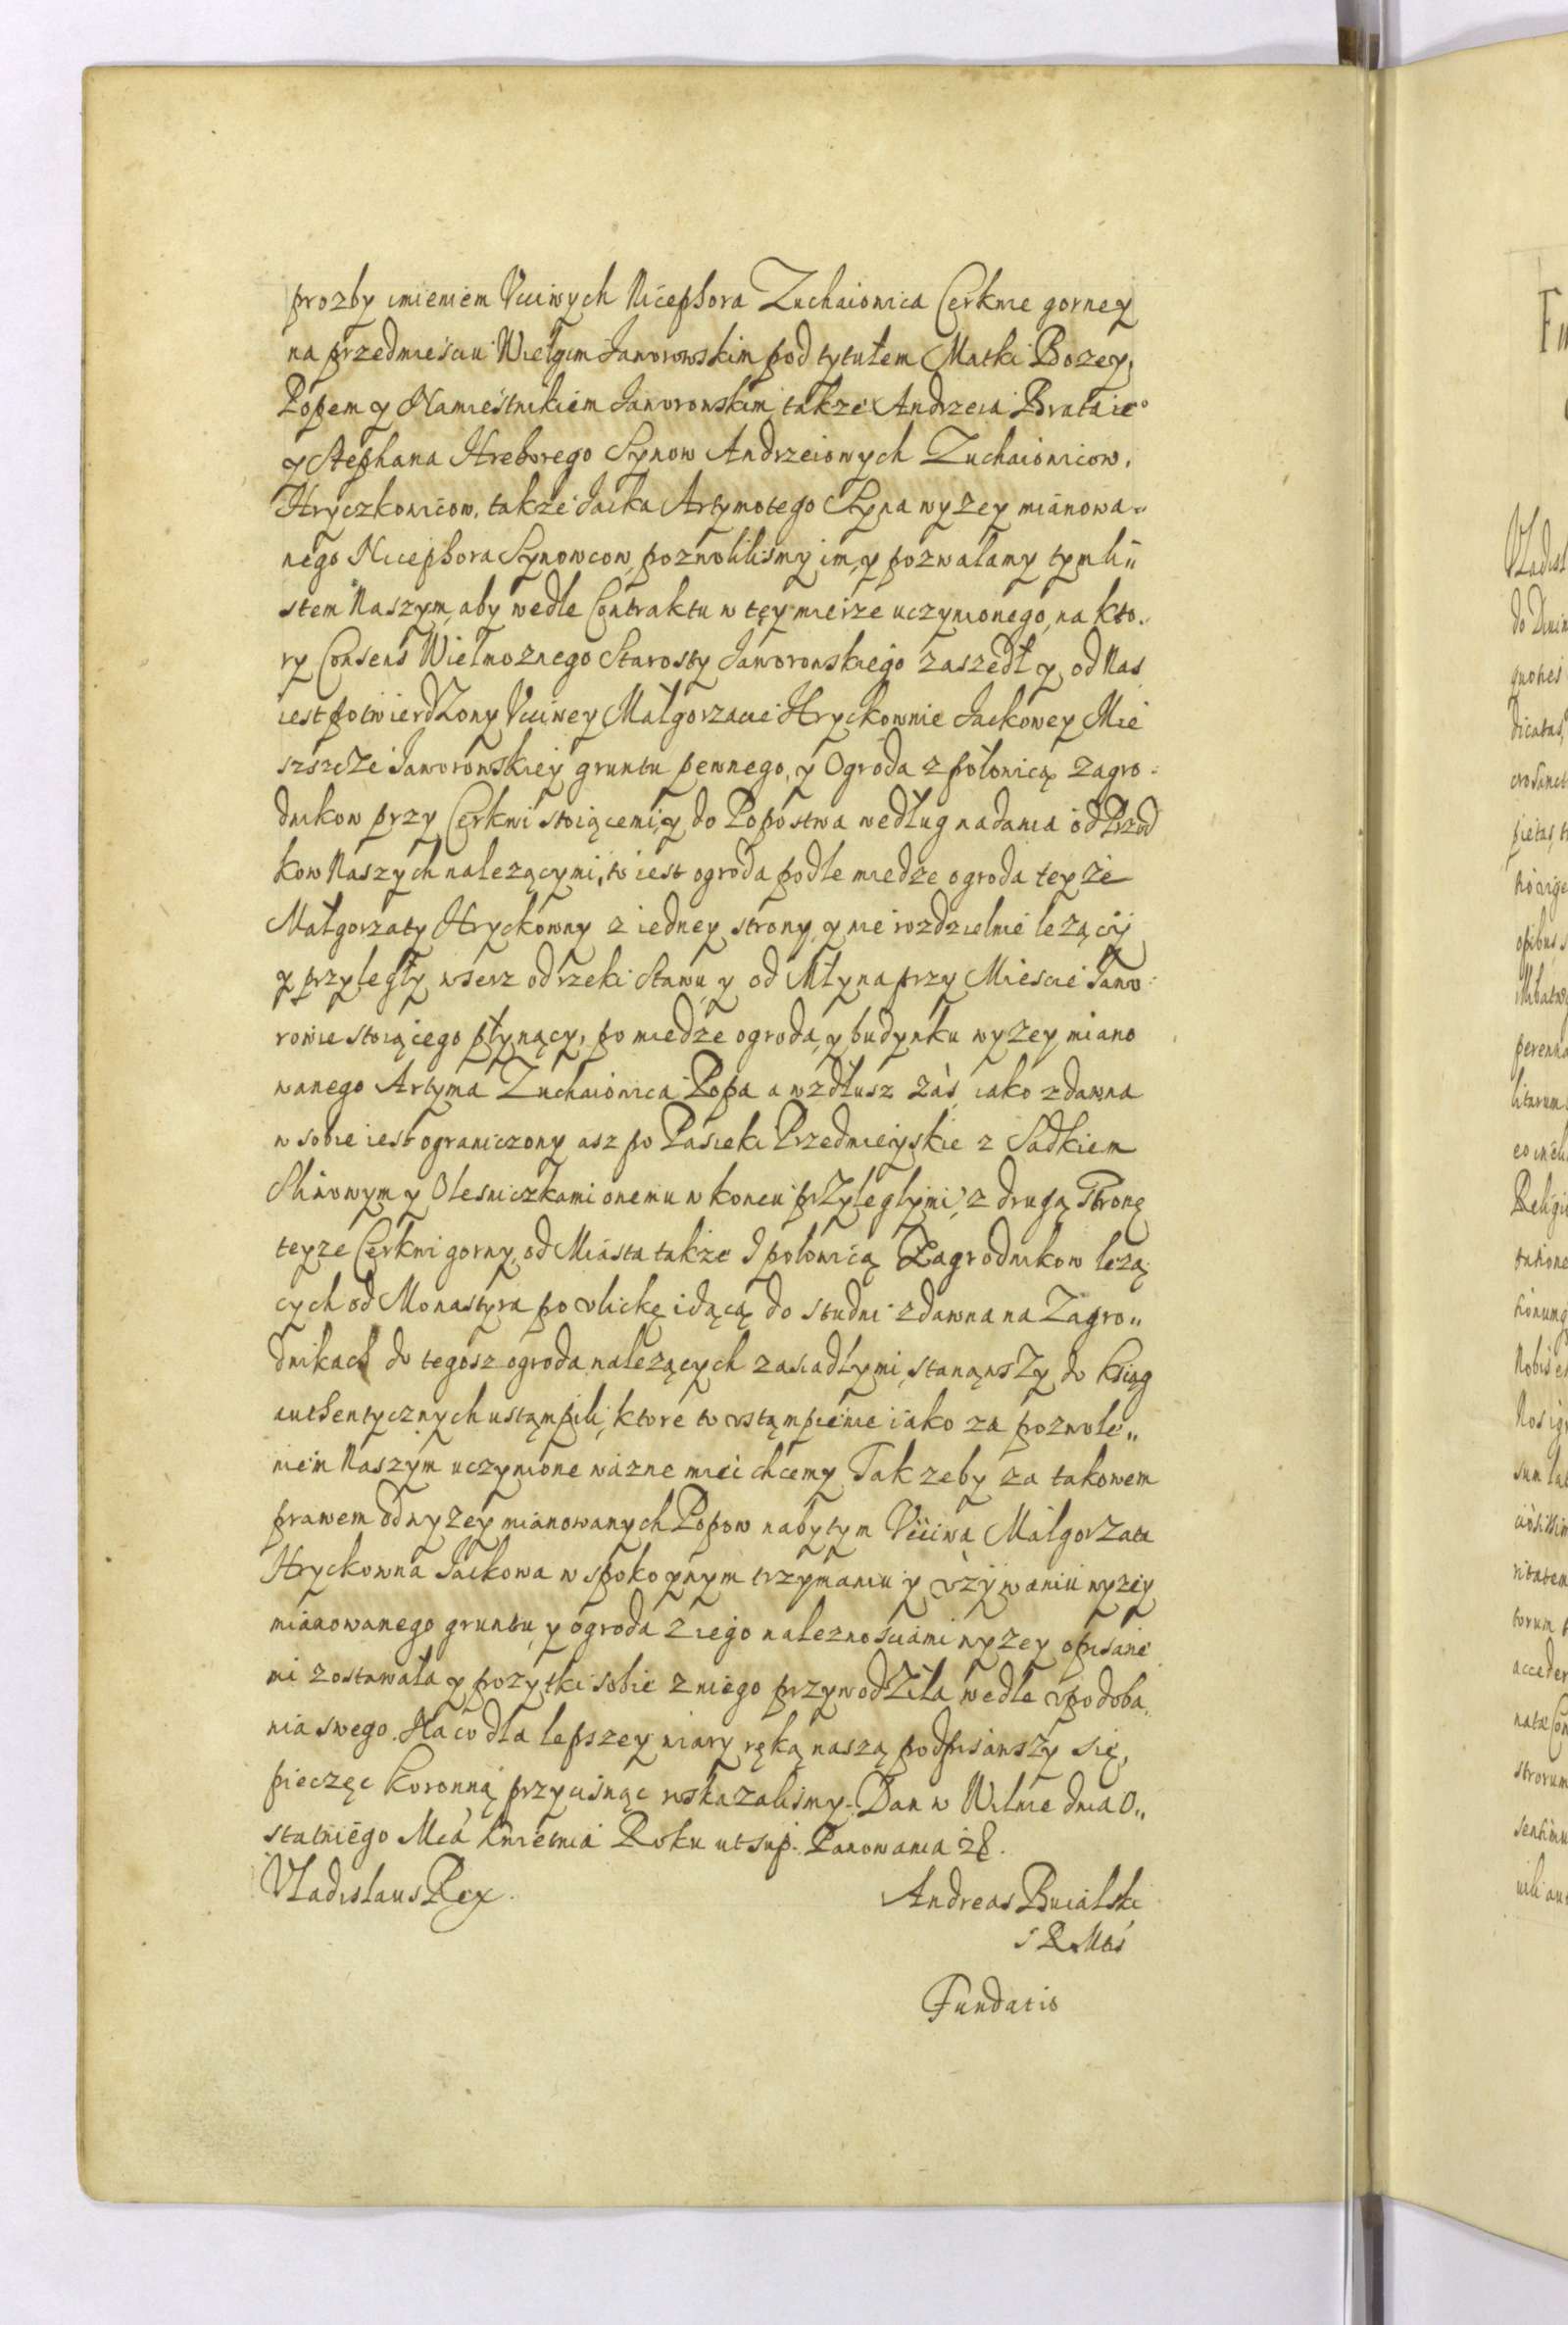 prozby imieniem Vcciwych Nicephora Zuchaiowica Cerkwie gorney
na przedmiesciu Wielgim Jaworowskim pod tytułem Matki Bozey,
Popem y Namiestnikiem Jaworowskim, takze Andrzeia Brata ie°
y Stephana Hreborego Synow Andrzeiowych Zuchaiowicow,
Hryczkowicow, takze Jacka Artymotego Syna wyzey mianowa„
nego Nicephora Synowcow, pozwolilismy im, y pozwalamy tym li„
stem Naszym, aby wedle Contraktu w tey mierze uczynionego, na kto„
ry Consens Wielmoznego Starosty Jaworowskiego zaszedł y, od Nas
iest potwierdzony Vcciwey Małgorzacie Hryckownie Jackowey Mie
szszcze Jaworowskiey gruntu pewnego, y Ogroda z połowicą zagro„
dnikow przy Cerkwi stoiącemi, y do Popostwa według nadania od Przod
kow Naszych nalezącymi, to iest ogroda podle miedze ogroda teyze
Małgorzaty Hryckowny z iedney strony, y nie rozdzielnie lezący
y przyległy wserz od rzeki Stawu, y od Młyna przy Miescie Jawo„
rowie stoiącego płynący, po miedze ogroda, y budynku wyzey miano
wanego Artyma Zuchaiowica Popa a wzdłusz zas iako zdawna
w sobie iest ograniczony asz po Pasieki Przedmieyskie z Sadkiem
Sliwowym y Olesniczkami onemu w koncu przyległymi, z drugą Stronę
teyze Cerkwi gorny, od Miasta takze I połowicą Zagrodnikow lezą
cych od Monastyra po vlickę idącą do studni zdawna na Zagro„
dnikach do tegosz ogroda nalezących zasiadłymi, stanąwszy do ksiąg
authentycznych ustąmpili, ktore to vstąmpienie iako za pozwole„
niem Naszym uczynione wazne miec chcemy Tak zeby za takowem
prawem od wyzey mianowanych Popow nabytym Vcciwa Małgorzata
Hryckowna Jackowa w spokoynym trzymaniu y vzywaniu wyzey
mianowanego gruntu, y ogroda z iego naleznosciami wyzey opisane
mi zostawała y pozytki sobie z niego przywodziła wedle vpodoba„
nia swego. Na co dla lepszey wiary ręką naszą podpisawszy się,
pieczęc Koronną przycisnąc roskazalismy. Dan w Wilnie dnia O„
statniego Mca Kwietnia Roku ut sup. Panowania
Vladislaus Rex.
Andreas Bucalski
S R Mtis
Fundatio